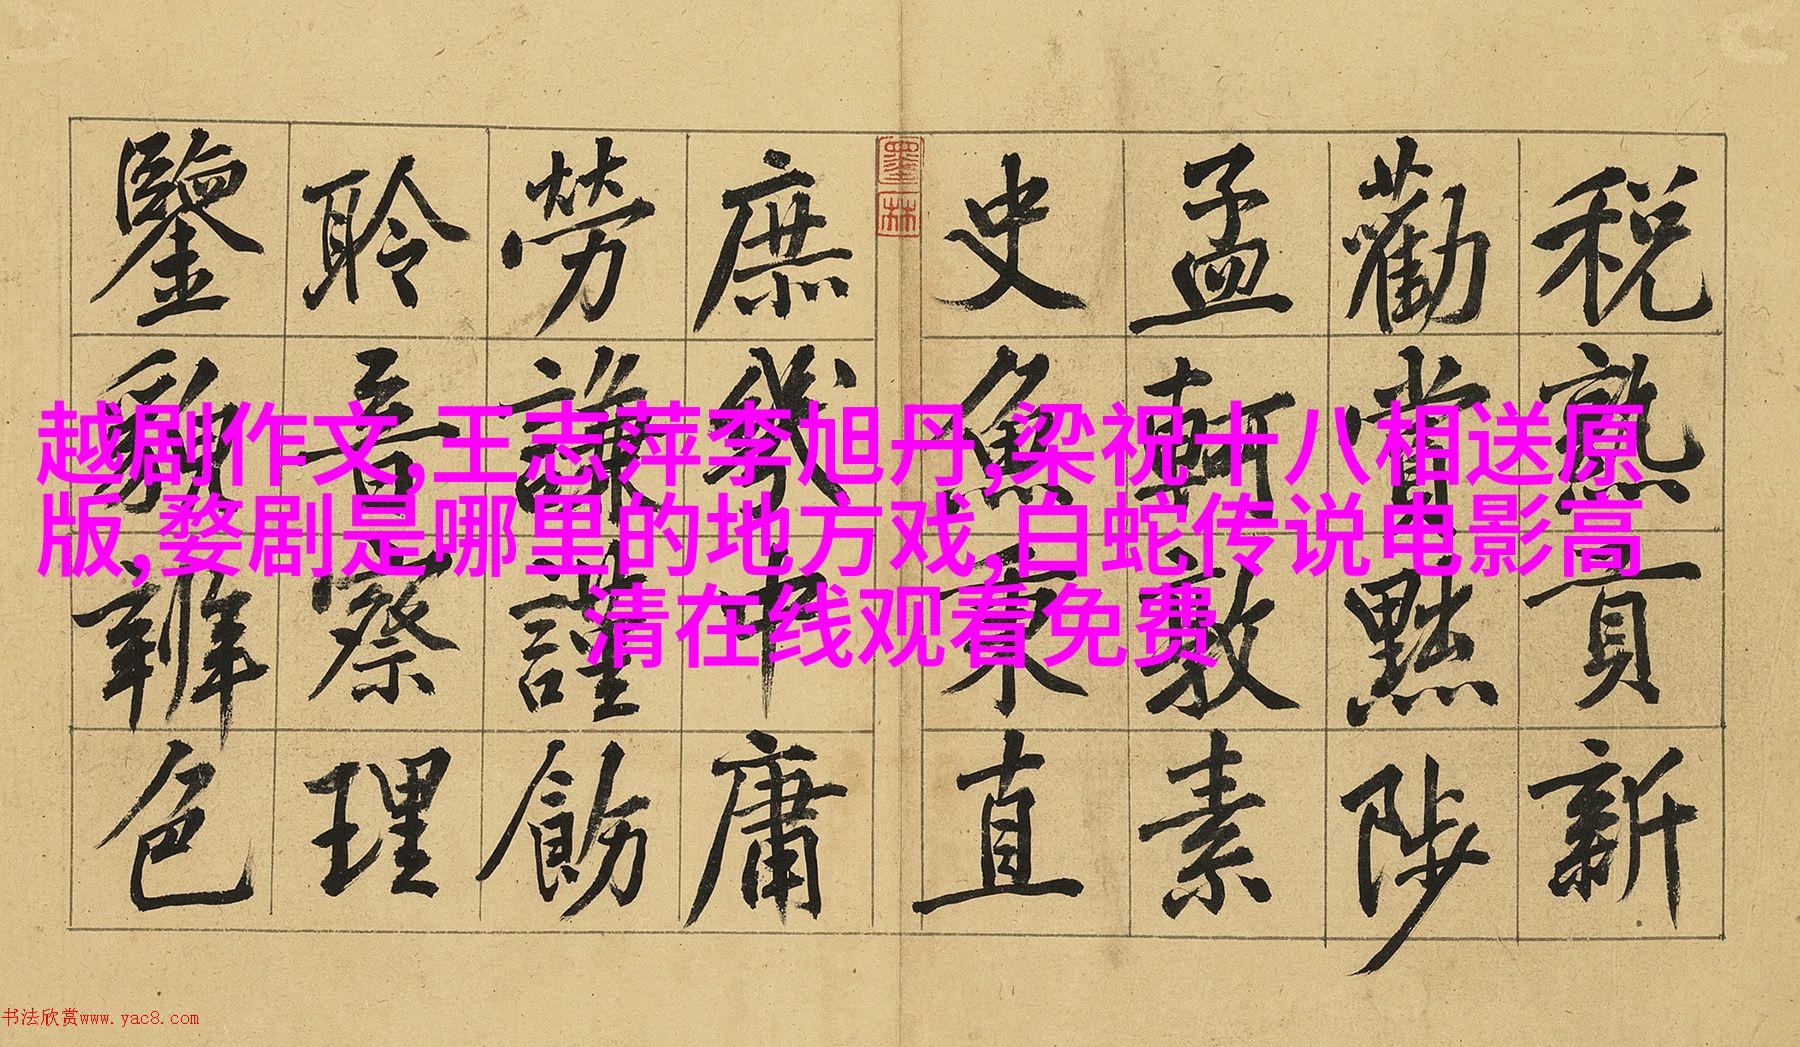 税熟貢新
勸賞黜陟
孟軻敦素
史魚秉直
墨林
庶幾中庸
勞謙謹飭
聆音察理
鑒貌辨色
越剧作文,王志萍李旭丹,梁祝十八相送原
版,婺剧是哪里的地方戏,白蛇传说电影高
清在线观看免费
书法欣赏www.yac8.com